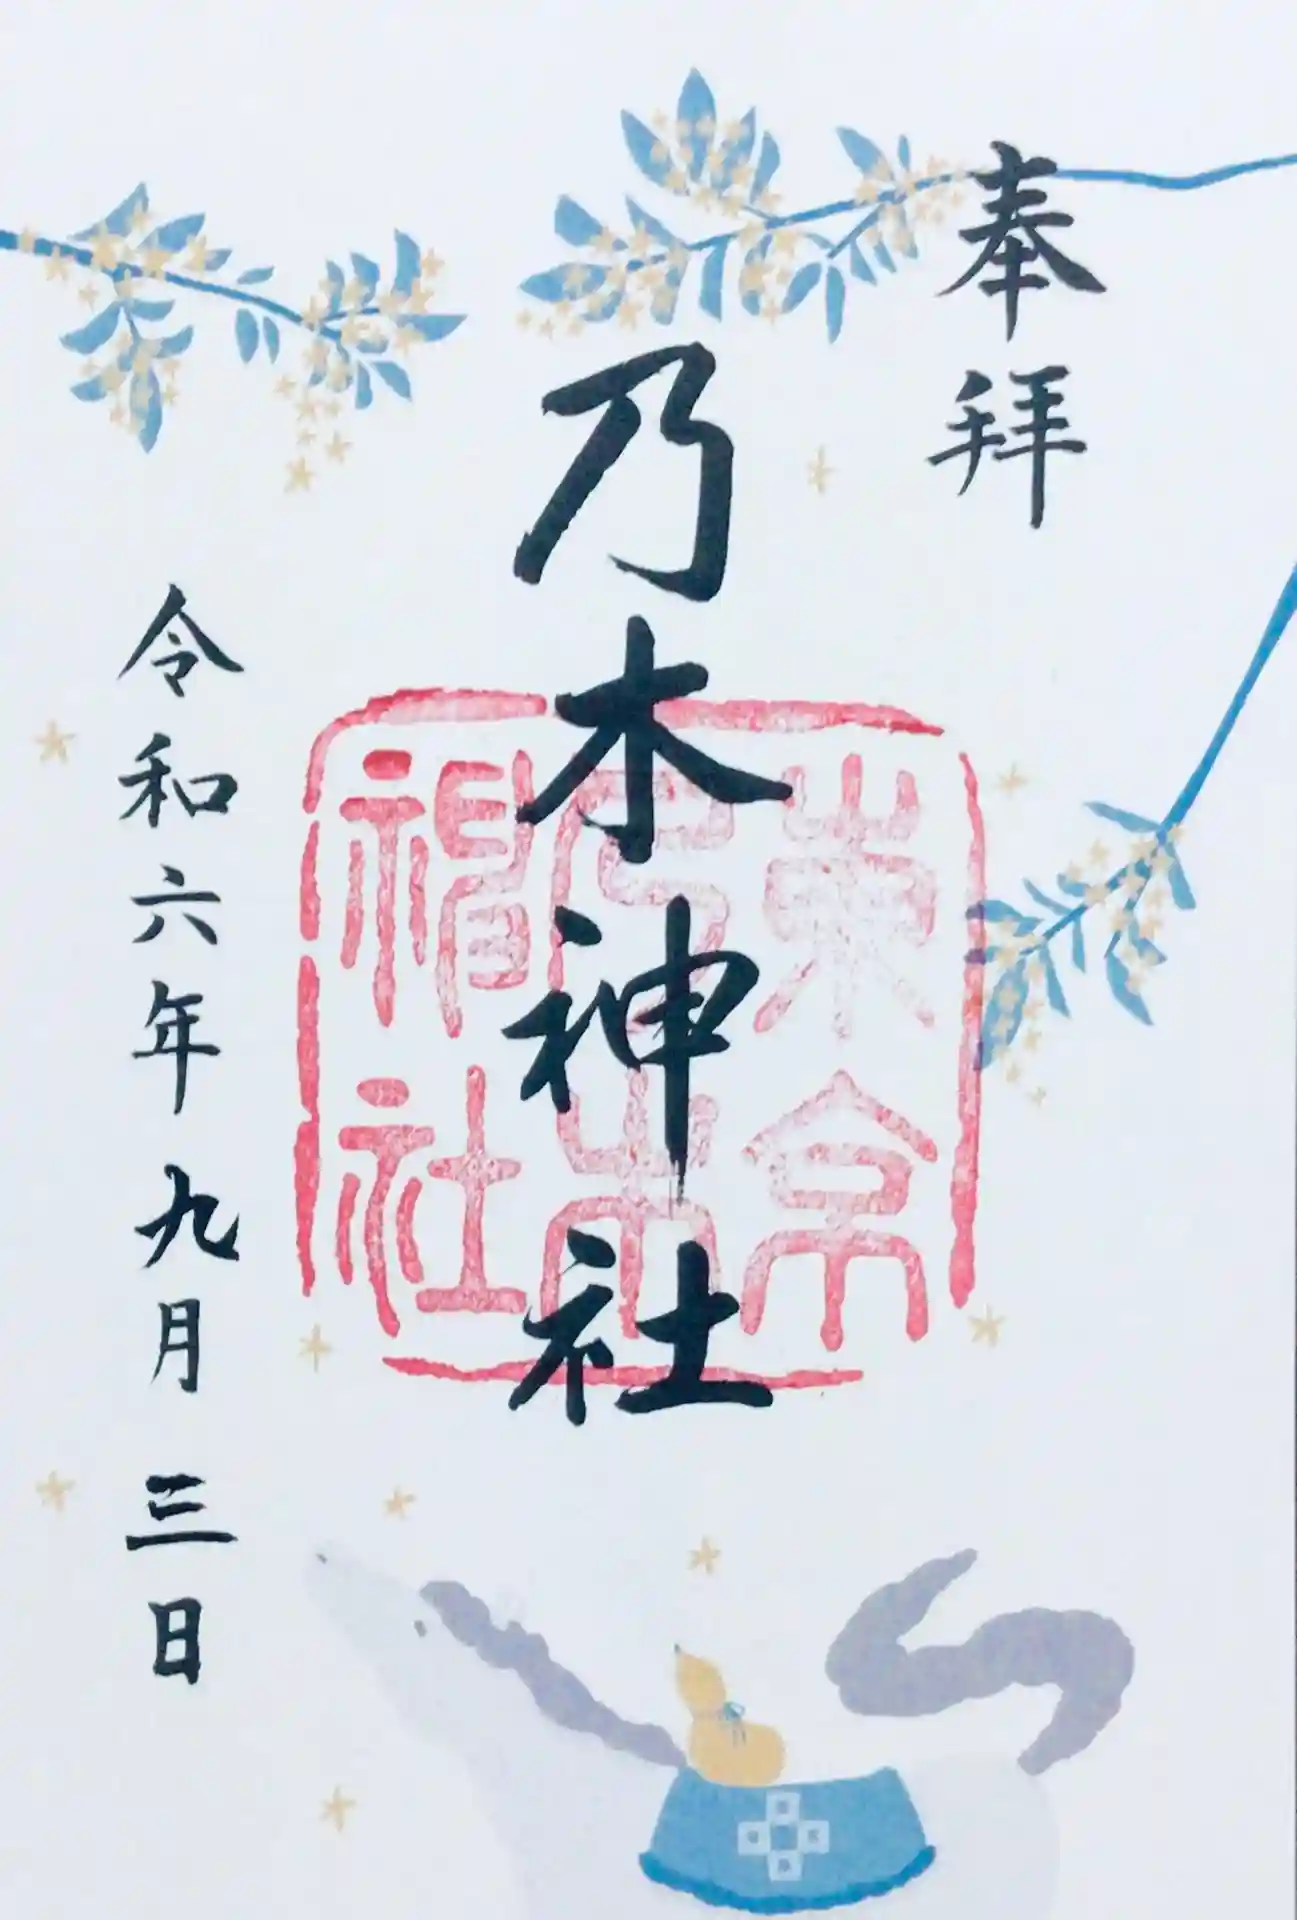 奉拝
乃木神社
東京
乃木
神社
令和六年九月三日